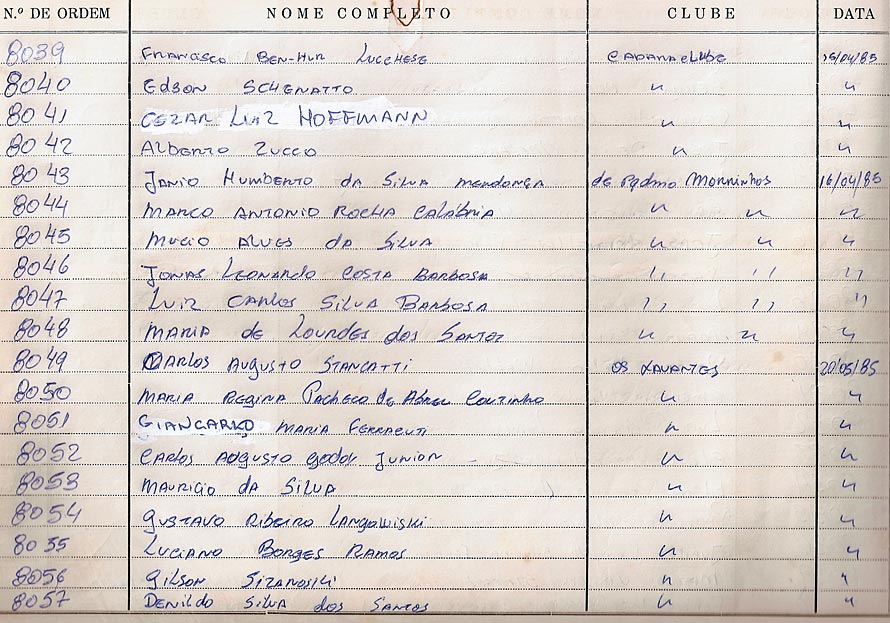 N.º DE ORDEM NOME COMPLETO CLUBE DATA
8039 Francisco Ben-Hur Lucchese 15/04/85
8040 Edson Schenatto " "
8041 Cezar Luiz Hoffmann " "
8042 Alberto Zucco " "
8043 Janio Humberto da Silva Mendonça de Pedro Morrinhos 16/04/85
8044 Marco Antonio Rocha Calábria " " "
8045 Mucio Alves da Silva " " "
8046 Jonas Leonardo Costa Barbosa " " "
8047 Luiz Carlos Silva Barbosa " " "
8048 Maria de Lourdes dos Santos " " "
8049 Carlos Augusto Stancatti os Xavantes 20/05/85
8050 Maria Regina Pacheco de Abreu Coutinho " "
8051 Giancarlo Maria Ferracuti " "
8052 Carlos Augusto Godoy Junior " "
8053 Mauricio da Silva " "
8054 Gustavo Ribeiro Langowiski " "
8055 Luciano Borges Ramos " "
8056 Gilson Sizanoski " "
8057 Denildo Silva dos Santos " "